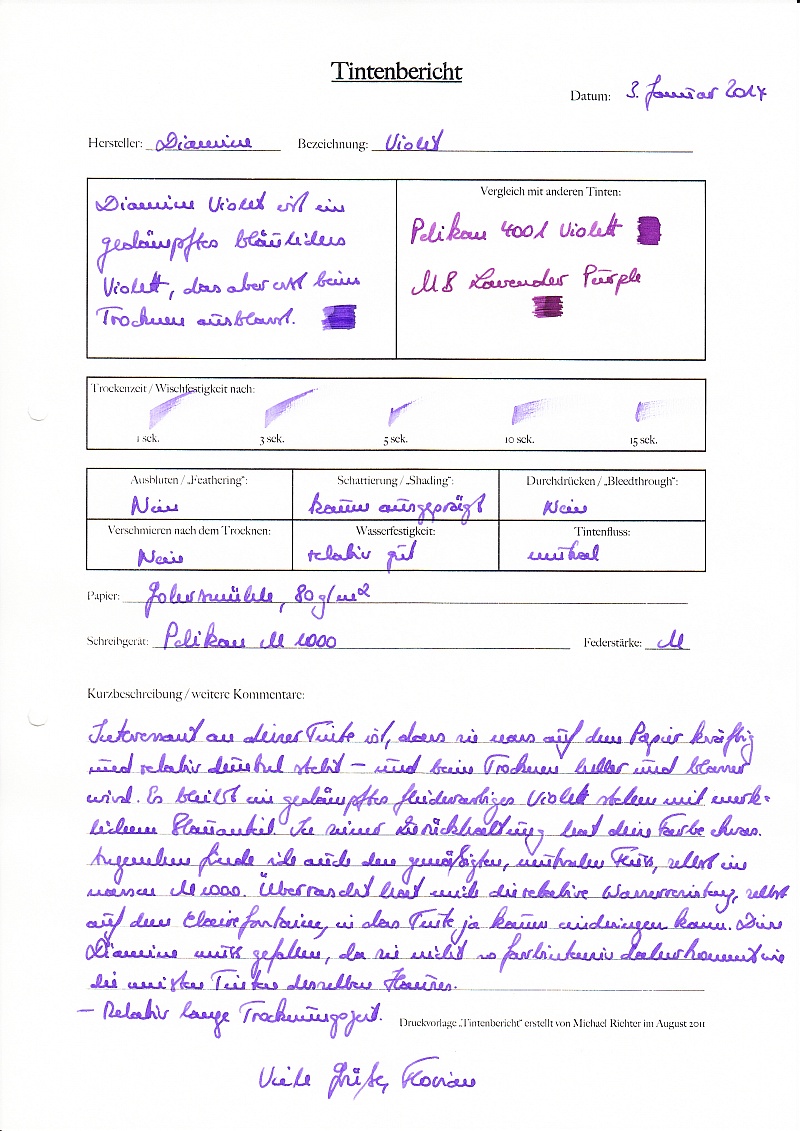 Tintenbericht
Datum: 3. Januar 2017
Hersteller: Diamine Bezeichnung: Violet
Diamine Violet ist ein
gedämpftes bläuliches
Violett, das aber erst beim
Trocknen ausblasst.
Vergleich mit anderen Tinten:
Pelikan 4001 Violett
MB Lavender Purple
Trockenzeit / Wischfestigkeit nach:
1 sek. 3 sek. 5 sek. 10 sek. 15 sek.
Ausbluten / „Feathering": Schattierung / „Shading": Durchdrücken / „Bleedthrough":
Nein kaum ausgeprägt Nein
Verschmieren nach dem Trocknen: Wasserfestigkeit: Tintenfluss:
Nein relativ gut neutral
Papier: Gohrsmühle, 80 g/m²
Schreibgerät: Pelikan M 1000 Federstärke: M
Kurzbeschreibung / weitere Kommentare:
Interessant an dieser Tinte ist, dass sie nass auf dem Papier kräftig
und relativ dunkel steht – und beim Trocknen heller und blasser
wird. Es bleibt ein gedämpftes fliederartiges Violett stehen mit merk-
lichem Blauanteil. In seiner Zurückhaltung hat diese Farbe etwas.
Angenehm finde ich auch den gemäßigten, neutralen Fluss, selbst im
nassen M 1000. Überrascht hat mich die relative Wasserresistenz, selbst
auf dem Clairefontaine, in das Tinte ja kaum eindringen kann. Diese
Diamine muss gefallen, da sie nicht so farbintensiv daherkommt wie
die meisten Tinten desselben Hauses.
– Relativ lange Trocknungszeit.
Druckvorlage „Tintenbericht" erstellt von Michael Richter im August 2011
Viele Grüße, Florian